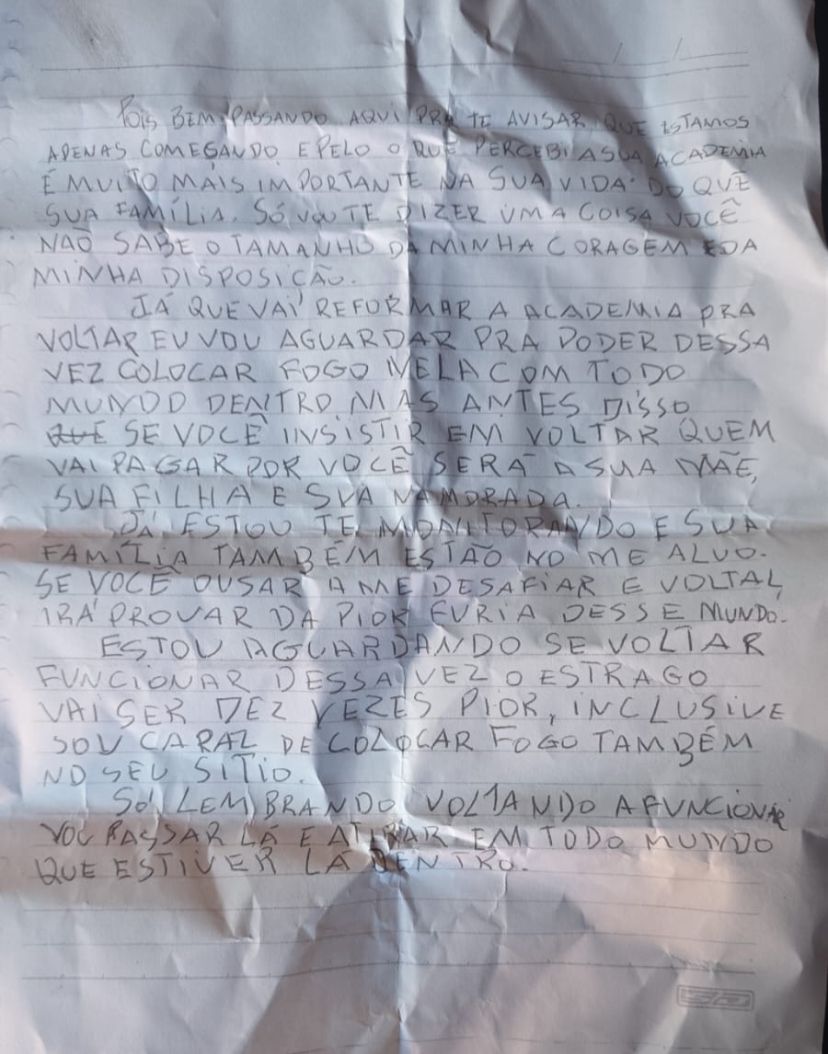 Pois BEM, PASSANDO AQUI PRA TE AVISAR QUE ESTAMOS
APENAS COMEGANDO E PELO O QUE PERCEBI A SUA ACADEMIA
É MUITO MAIS IMPORTANTE NA SUA VIDA DO QUE
SUA FAMÍLIA. SÓ VOU TE DIZER UMA COISA VOCÊ
NÃO SABE O TAMANHO DA MINHA CORAGEM E DA
MINHA DISPOSIÇÃO.
JÁ QUE VAI REFORMAR A ACADEMIA PRA
VOLTAR EU VOU AGUARDAR PRA PODER DESSA
VEZ COLOCAR FOGO NELA COM TODO
MUNDO DENTRO MAS ANTES DISSO
QUE SE VOCÊ INSISTIR EM VOLTAR QUEM
VAI PAGAR POR VOCÊ SERÁ A SUA MÃE,
SUA FILHA E SUA NAMORADA.
JÁ ESTOU TE MONITORANDO E SUA
FAMÍLIA TAMBÉM ESTÃO NO ME ALVO.
SE VOCÊ OUSAR A ME DESAFIAR E VOLTAL,
IRÁ PROVAR DA PIOR FURIA DESSE MUNDO.
ESTOU AGUARDANDO SE VOLTAR
FUNCIONAR DESSA VEZ O ESTRAGO
VAI SER DEZ VEZES PIOR, INCLUSIVE
SOU CAPAZ DE COLOCAR FOGO TAMBÉM
NO SEU SITIO.
SÓ LEMBRANDO VOLTANDO A FUNCIONAR
VOU PASSAR LÁ E ATIRAR EM TODO MUNDO
QUE ESTIVER LÁ DENTRO.